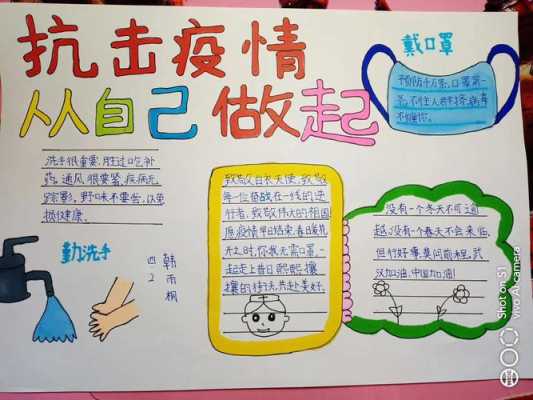 抗击疫情
从自己做起
戴口罩
预防千万条,口罩第一
条,不往人群挤,病毒
不懂你。
洗手很重要,胜过吃补
药。通风很要紧,疾病无
踪影,野味不要尝,以免
损健康。
勤洗手
四2 韩雨桐
致敬白衣天使,致敬
每一位奋战在一线的逆
行者,致敬伟大的祖国
愿疫情早日结束,春日暖
开之时,你我无需口罩,一
起走上昔日熙熙攘
攘的街头,共赴美好。
没有一个冬天不可逾
越,没有一个春天不会来临,
但行好事,莫问前程,武
汉加油,中国加油!
Shot on S1
vivo AI camera